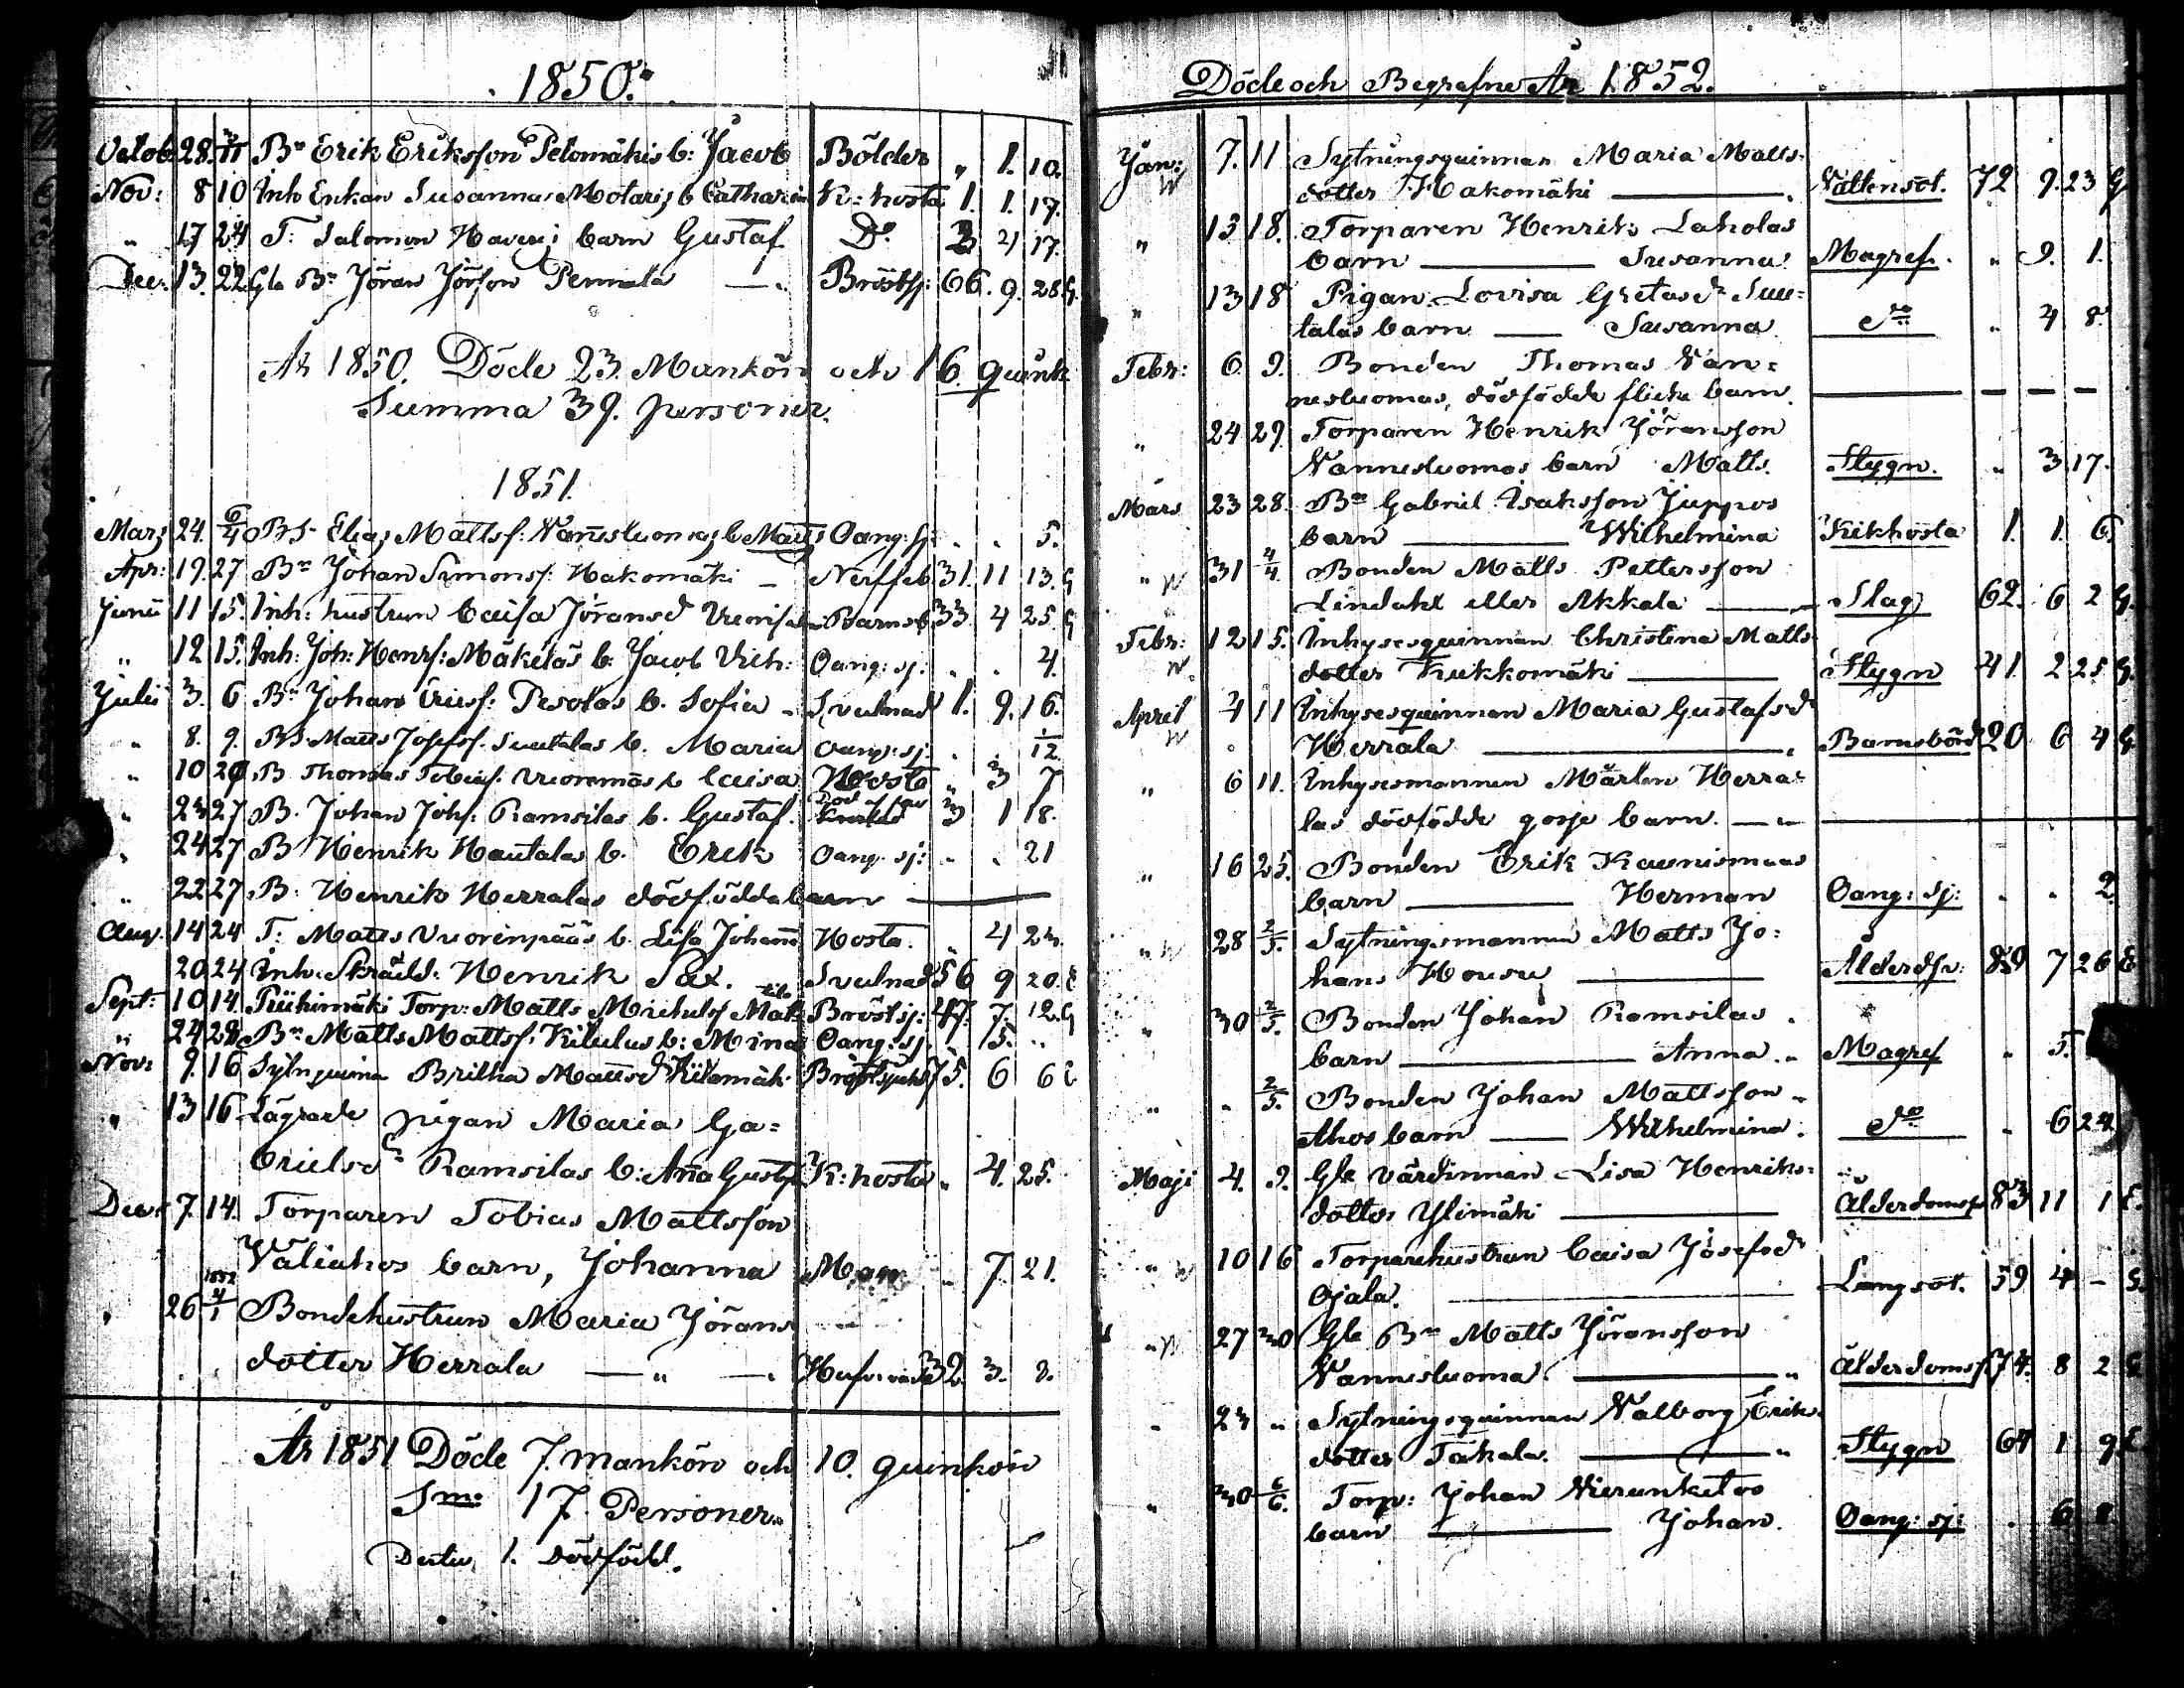 1850.
Octob 28. 3/11 Bn Erik Eriksson Pelomäkis b: Jacob Bölder " 1. 10.
Nov: 8 10 Inh Enkan Susannas Motaris b Catharin K: hosta 1. 1. 17.
" 17 24 T: Salomon Haveris barn Gustaf Do 2 4 17.
Dec: 13. 22 Gla Bn Jöran Jörsson Pennala Bröstsj: 66. 9. 28. G.
År 1850. Döde 23. Mankön och 16. quink
Summa 39. personer.
1851.
Mars 24. 6/4 BS. Elias Mattsf: Wannesluomas b Matts Oang: sj: . . 5.
Apr: 19. 27 Bn Johan Simonsf. Hakomäki Nerffeb. 31. 11 13. G
Junii 11 15. Inh: hustrun Caisa Jöransd Barnsb. 33. 4 25. G
" 12 15. Inh: Joh: Henrs: Mäkeläs b: Jacob Vilh: Oang: sj: . . 4.
Julii 3. 6 Bn Johan Pesolas b. Sofia Svulnad 1. 9. 16.
" 8. 9. BS. Matts Josefsf. Suutalas b. Maria Oang: sj. . . 1/12
" 10 20 B Thomas Vuorenmäs b Caisa Hosta " 3 7
" 23 27 B. Johan Johs: Ramsilas b. Gustaf. 3 1 18.
" 24 27 B Henrik Hautalas b. Erik Oang. sj: . . 21
" 22 27 B. Henrik Herralas dödfödda barn
Aug. 14 24 T: Matts Vuorinpääs b. Lisa Johann Hosta. " 4 23.
20 24 Inh: Skrädd: Henrik Sax. Svulnad 56 9 20. E
Sept: 10 14. Piihimäki Torp: Matts Michelsf Bröstsj: 47. 7. 12. G
" 24 28 Bn Matts Mattsf. Kilulus b: Mina Oang: sj. 1. 5. "
Nov: 9. 16 Sytnquina Britha Mattsd Kilomäk. Bröstsjuk 75. 6 6
" 13 16 Lägrade pigan Maria Ga=
brielsdr Ramsilas b: Anna Gustf K: hosta " 4. 25.
Dec: 7. 14. Torparen Tobias Mattsson
Väliahos barn, Johanna 7. 21.
" 26 1852 4/1 Bondehustrun Maria Jörans
dotter Herrala 32. 3. 3.
År 1851 Döde 7. mankön och 10. quinkön
Sma 17. Personer.
1. dödfödd.
Döde och Begrafne År 1852.
Jan: 7. 11 Sytningsquinnan Maria Matts-
W dotter Hakomäki Vattensot. 72 9. 23 G
" 13 18. Torparen Henrik Laholas
barn Susanna Magref. " 9. 1.
" 13 18 Pigan Lovisa Gretasdr Suu=
talas barn Susanna do " 4 8.
Febr: 6. 9. Bonden Thomas Van=
nesluomas, dödfödde flicke barn.
" 24 29. Torparen Henrik Jöransson
Vannesluomas barn Matts. Stygn. " 3 17.
Mars 23 28. Bn Gabriel Isaksson Juppos
barn Wilhelmina Kikhosta 1. 1. 6.
" W 31 4/4. Bonden Matts Pettersson
Lindahl eller Akkala Slag 62. 6 2 G.
Febr: 12 15. Inhysesquinnan Christina Matts
W. dotter Kukkomäki Stygn 41. 2 25 G.
April 4 11 Inhysesquinnan Maria Gustafsdr
W Herrala Barnsbörd 20 6 4 G
" 6 11. Inhysesmannen Mårten Herra=
las dödfödde gosse barn.
" 16 25. Bonden Erik Kaunismaas
barn Herman Oang: sj: . . 2
" W 28 2/5. Sytningsmannen Matts Jo=
hans Housu Ålderdsv: 89 7 26 E
" 30 2/5. Bonden Johan Ramsilas
barn Anna. Magref " 5.
" " 2/5. Bonden Johan Mattsson
Ahos barn Wilhelmina. do " 6 24
Maji 4. 9. Gla värdinnan Lisa Henriks=
dotter Ylimäki Ålderdomsv 83 11 1 E.
" W 10 16 Torparehustrun Caisa Josefsdr
Ojala. Lungsot. 59 4 - G.
" W 27 30 Gla Bn Matts Jöransson
Vannesluoma. Ålderdomsv 74. 8 2 G
" 23 " Sytningsquinnan Valborg Eriks
dotter Taikala. Stygn 64 1 9 E
" 30 6/6. Torp: Johan Nirunketos
barn Johan. Oang: sj: . 6 8